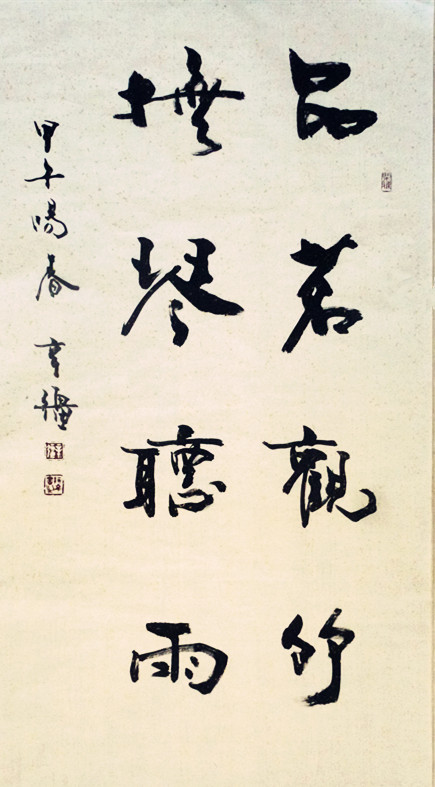 品茗觀竹
撫琴聽雨
甲午陽春